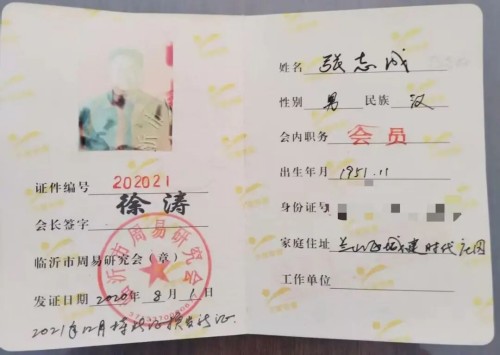 证件编号 202021
会长签字 徐涛
临沂市周易研究会（章）
临沂市周易研究会
发证日期 2020 年 8 月 1 日
2021年12月持此证换发新证.
姓名 张志成
性别 男 民族 汉
会内职务 会员
出生年月 1951.11
身份证号
家庭住址 兰山区城建时代花园
工作单位